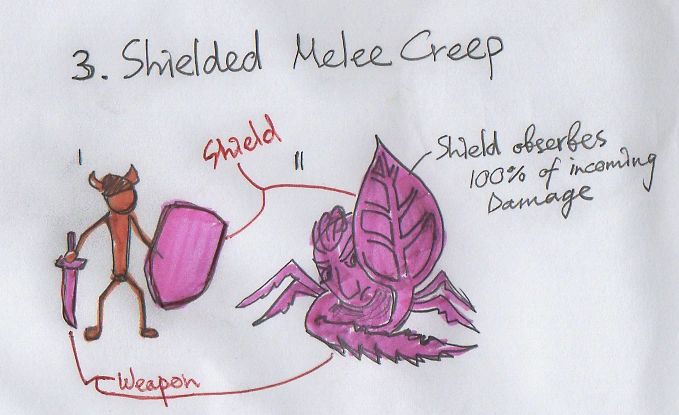 3. Shielded Melee Creep
I
Shield
II
Shield obserbes
100% of incoming
Damage
Weapon